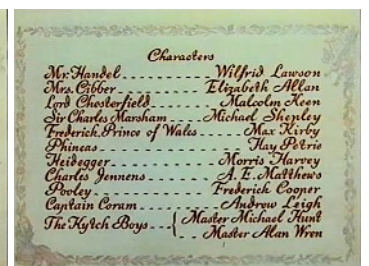 Characters
Mr. Handel - - - - - - - - - - - Wilfrid Lawson
Mrs. Cibber - - - - - - - - - - Elizabeth Allan
Lord Chesterfield - - - - - - - Malcolm Keen
Sir Charles Marsham - - - - - - Michael Shepley
Frederick, Prince of Wales - - - - Max Kirby
Phineas - - - - - - - - - - - - Hay Petrie
Heidegger - - - - - - - - - - Morris Harvey
Charles Jennens - - - - - - - A. E. Matthews
Pooley - - - - - - - - - - - Frederick Cooper
Captain Coram - - - - - - - - Andrew Leigh
The Kytch Boys - - - { Master Michael Hunt
Master Alan Wren